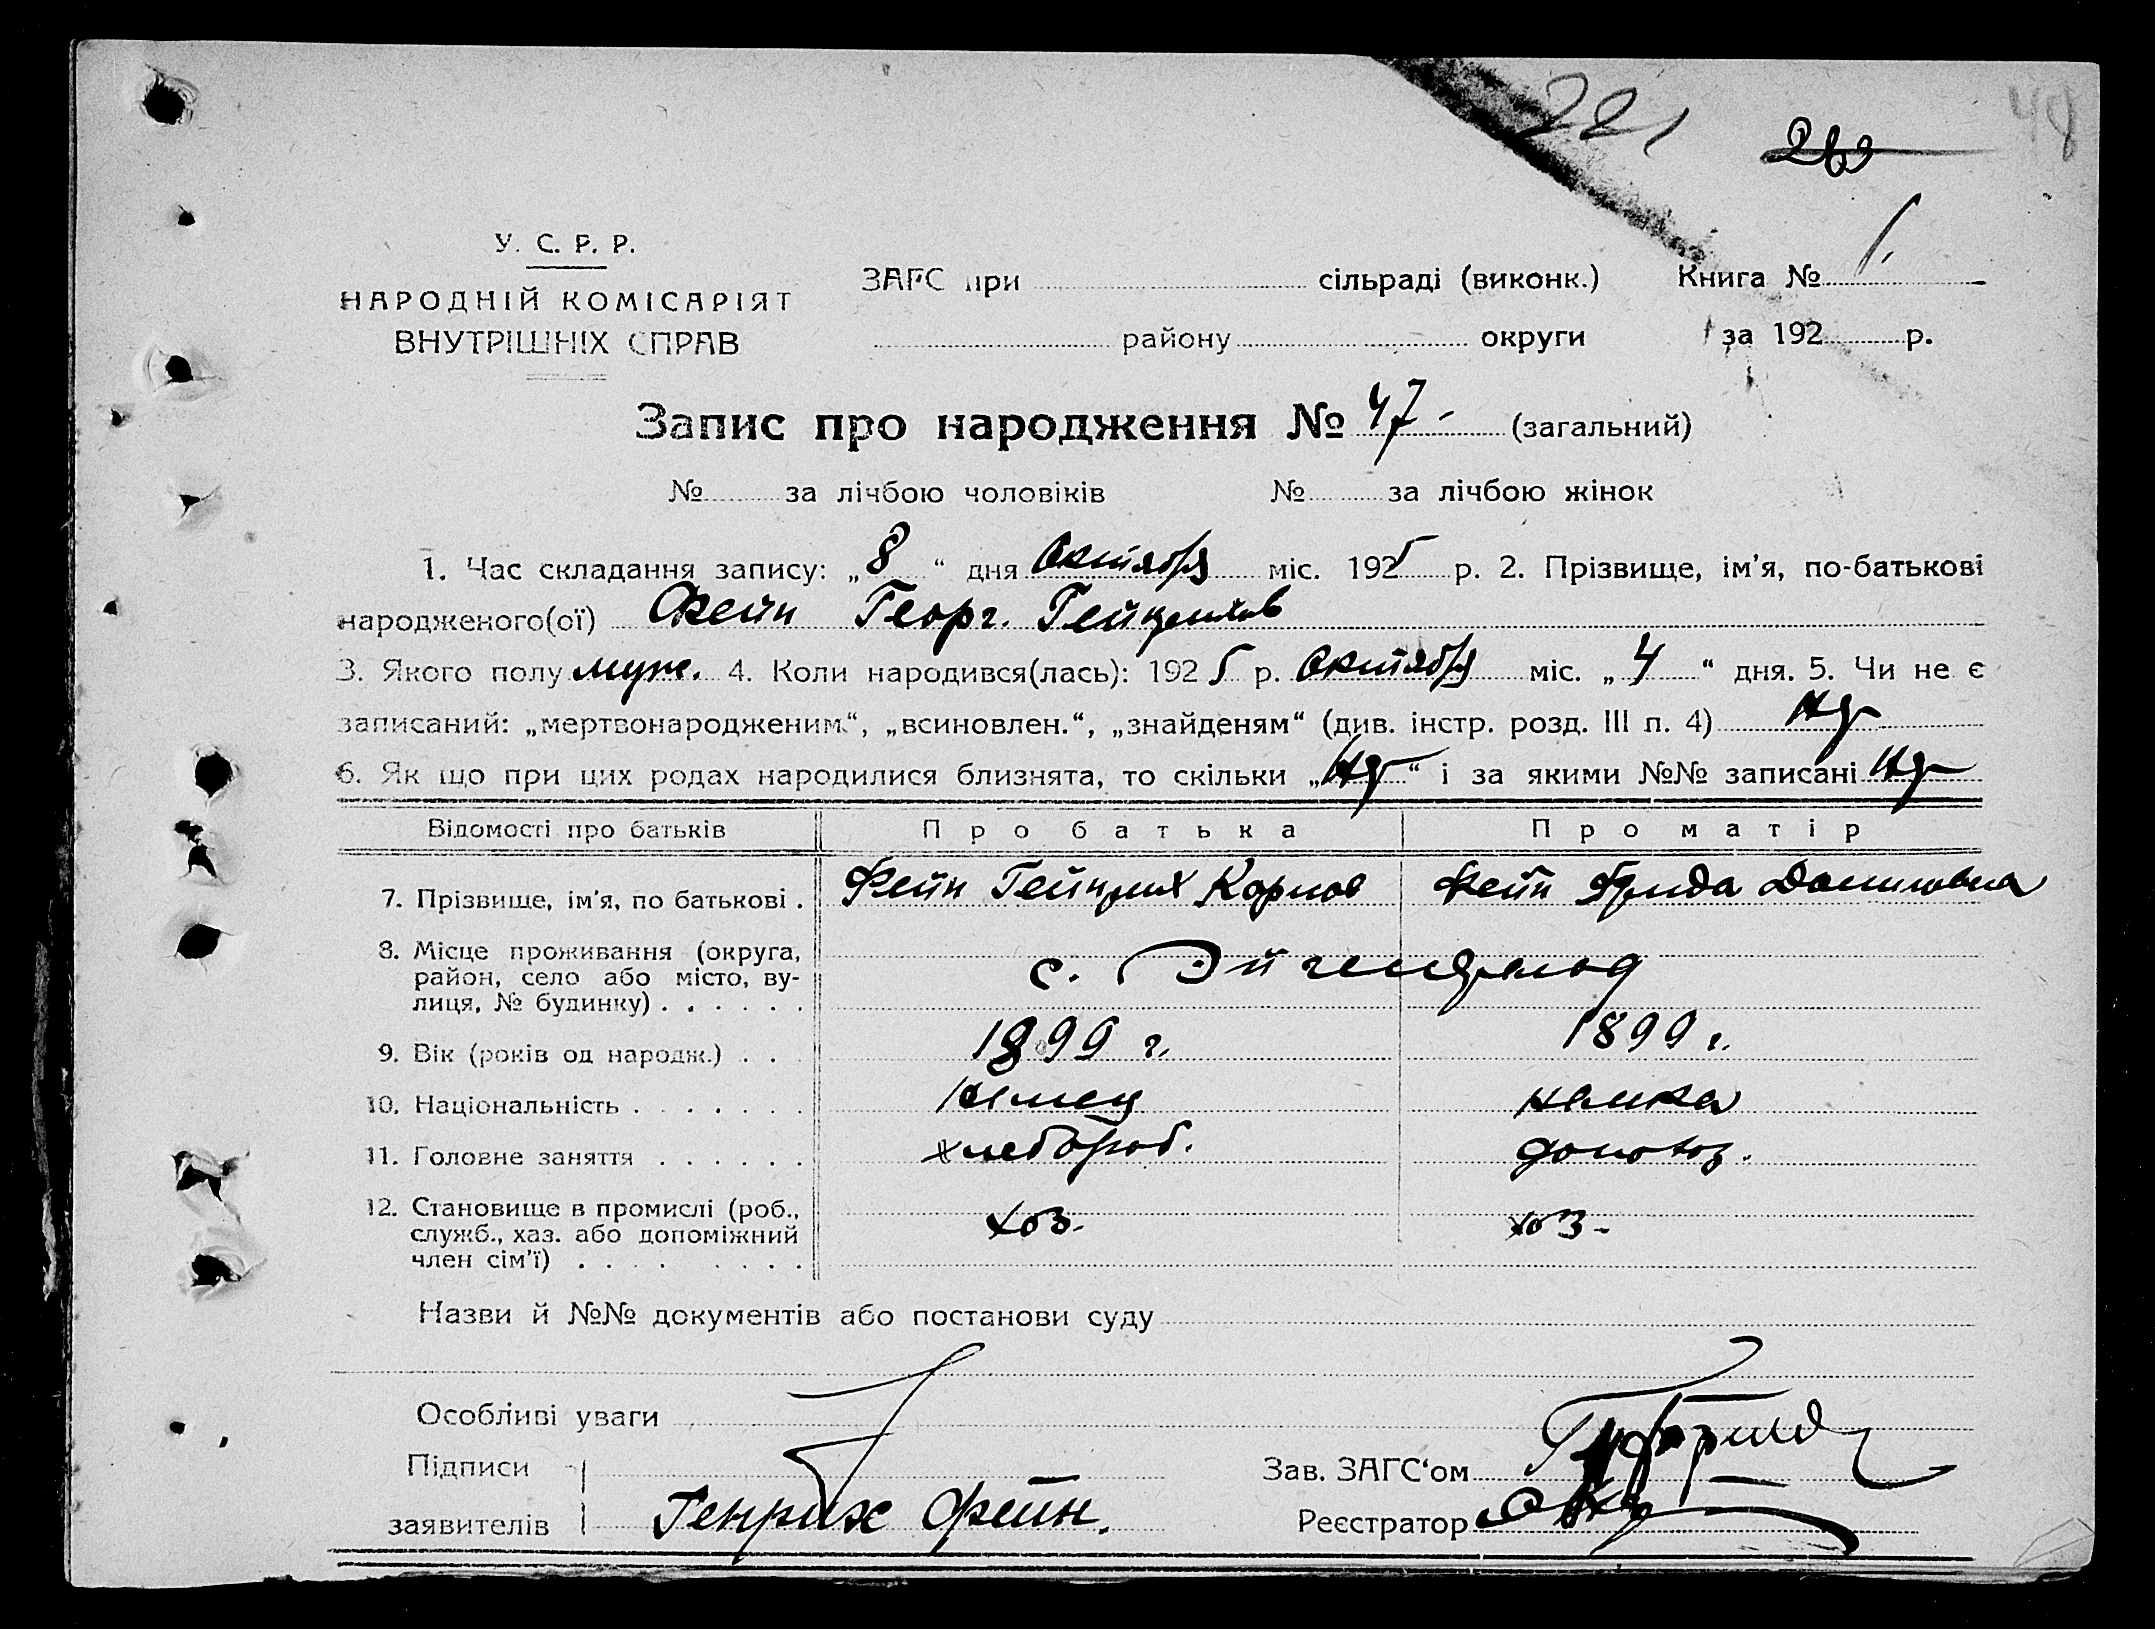 221
263
48
У. С. Р. Р.
НАРОДНІЙ КОМІСАРІЯТ
ВНУТРІШНІХ СПРАВ
ЗАГС при сільраді (виконк.) Книга № 1.
району округи за 192 р.
Запис про народження № 47 - (загальний)
№ за лічбою чоловіків № за лічбою жінок
1. Час складання запису: „8“ дня Октября міс. 1925 р. 2. Прізвище, ім'я, по-батькові
народженого(ої) Фейн Георг. Гейнрихов
3. Якого полу муж. 4. Коли народився(лась): 1925 р. Октября міс. „4“ дня. 5. Чи не є
записаний: „мертвонародженим“, „всиновлен.“, „знайденям“ (див. інстр. розд. III п. 4)
6. Як що при цих родах народилися близнята, то скільки „ “ і за якими №№ записані
Відомості про батьків Про батька Про матір
7. Прізвище, ім'я, по батькові . Фейн Гейнрих Корнов Фейн Даниловна
8. Місце проживання (округа,
район, село або місто, ву-
лиця, № будинку) . . . . . . с. Эйгенфельд
9. Вік (років од народж.) . . 1899 г. 1899 г.
10. Національність . . . . . . . немец немка
11. Головне заняття . . . . . . хлебороб. домохоз.
12. Становище в промислі (роб.,
служб., хаз. або допоміжний
член сім'ї) . . . . . . . . хоз. хоз -
Назви й №№ документів або постанови суду
Особливі уваги
Підписи
заявителів Генрих Фейн.
Зав. ЗАГС‘ом
Реєстратор